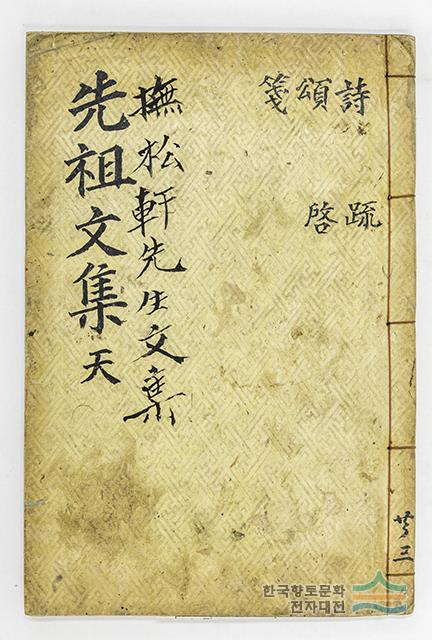 先祖文集 天
撫松軒先生文集
詩 疏
頌 啓
箋
共三
한국향토문화
전자대전